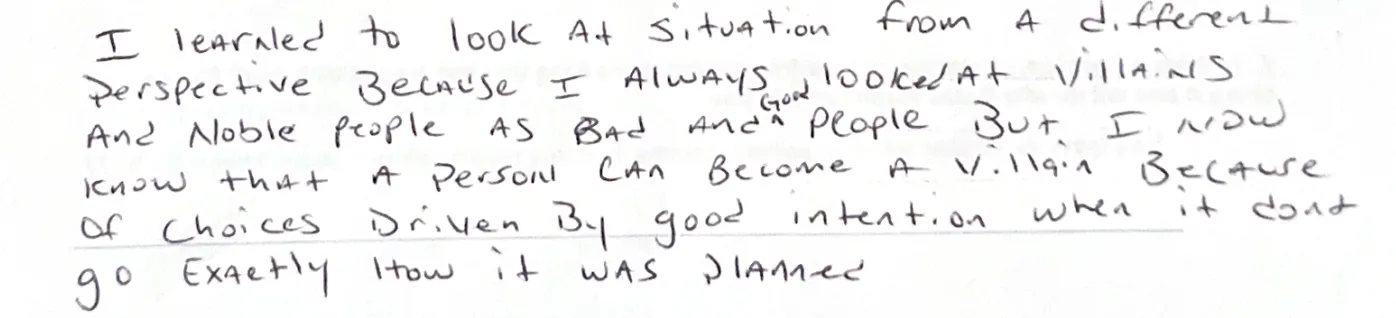 I learned to look At situation from A different
Perspective Because I Always looked At Villains
And Noble people AS BAd And Good People But I now
know that A Person CAn Become A Villain Because
Of Choices Driven By good intention when it dont
go Exactly How it wAS planned